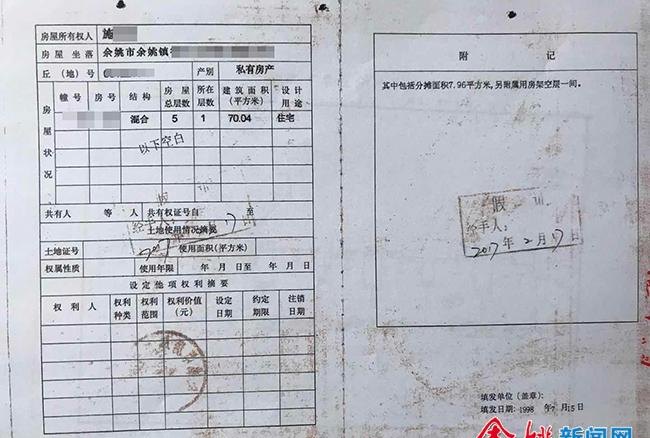 房屋所有权人 施
房屋坐落 余姚市余姚镇
丘（地）号 产别 私有房产
房屋状况
幢号 房号 结构 房屋总层数 所在层数 建筑面积（平方米） 设计用途
混合 5 1 70.04 住宅
以下空白
共有人 等 人 共有权证号自 至
土地使用情况摘要
土地证号 使用面积(平方米)
权属性质 使用年限 年 月 日至 年 月 日
设定他项权利摘要
权利人 权利种类 权利范围 权利价值(元) 设定日期 约定期限 注销日期
附 记
其中包括分摊面积7.96平方米,另附属用房架空层一间。
假
经手人:
2017年2月17日
填发单位(盖章):
填发日期:1998 年7月15日
余姚新闻网